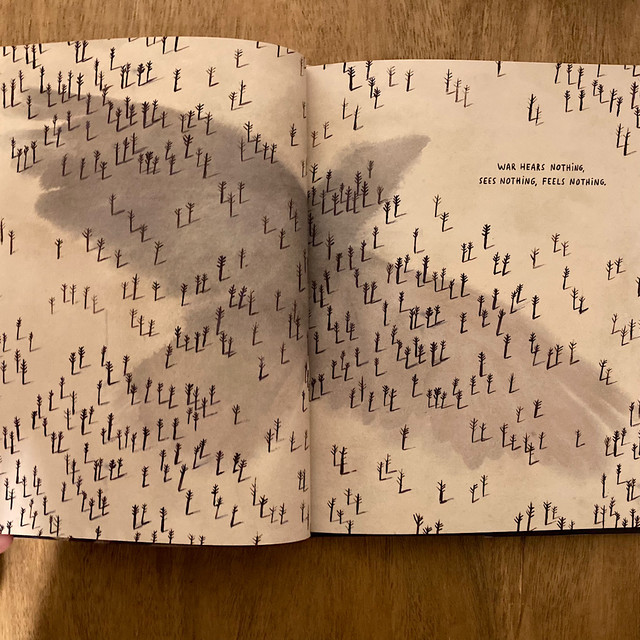 WAR HEARS NOTHING,
SEES NOTHING, FEELS NOTHING.